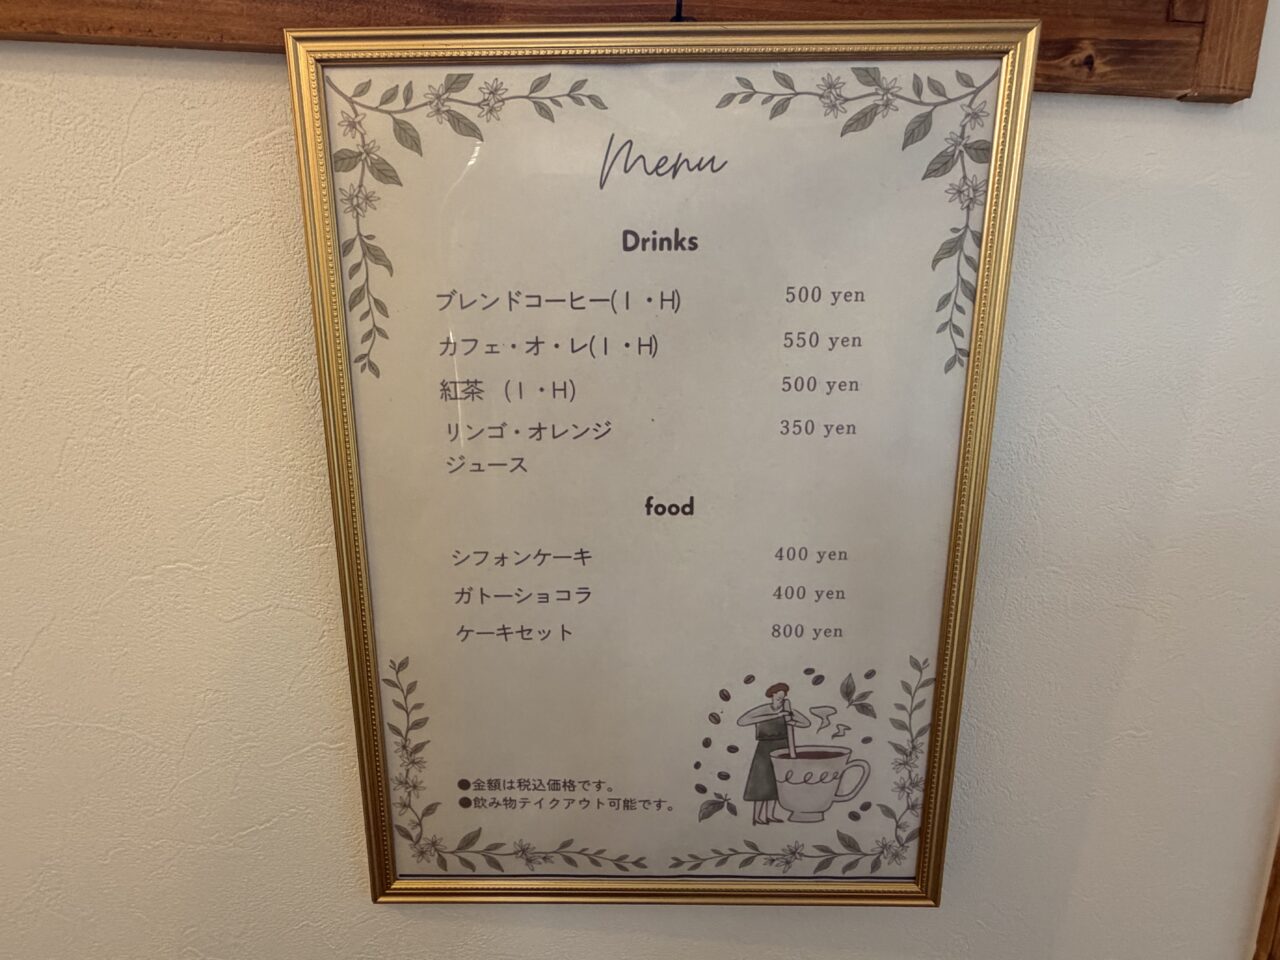 Menu
Drinks
ブレンドコーヒー(I・H) 500 yen
カフェ・オ・レ(I・H) 550 yen
紅茶 (I・H) 500 yen
リンゴ・オレンジ 350 yen
ジュース
food
シフォンケーキ 400 yen
ガトーショコラ 400 yen
ケーキセット 800 yen
●金額は税込価格です。
●飲み物テイクアウト可能です。